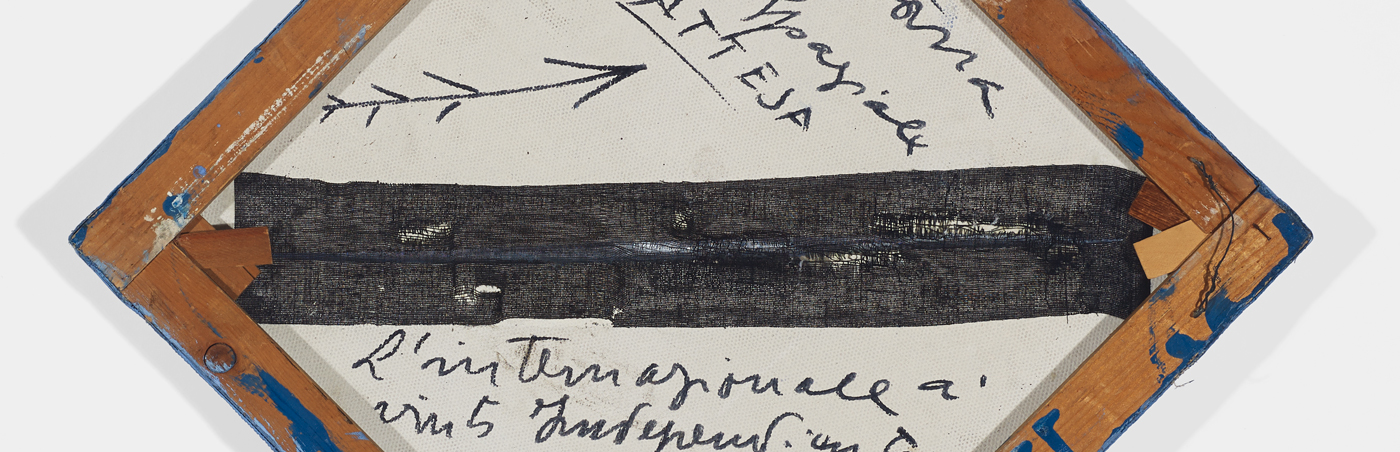 spaziale
ATTESA
L'internazionale a'
vinto Independient